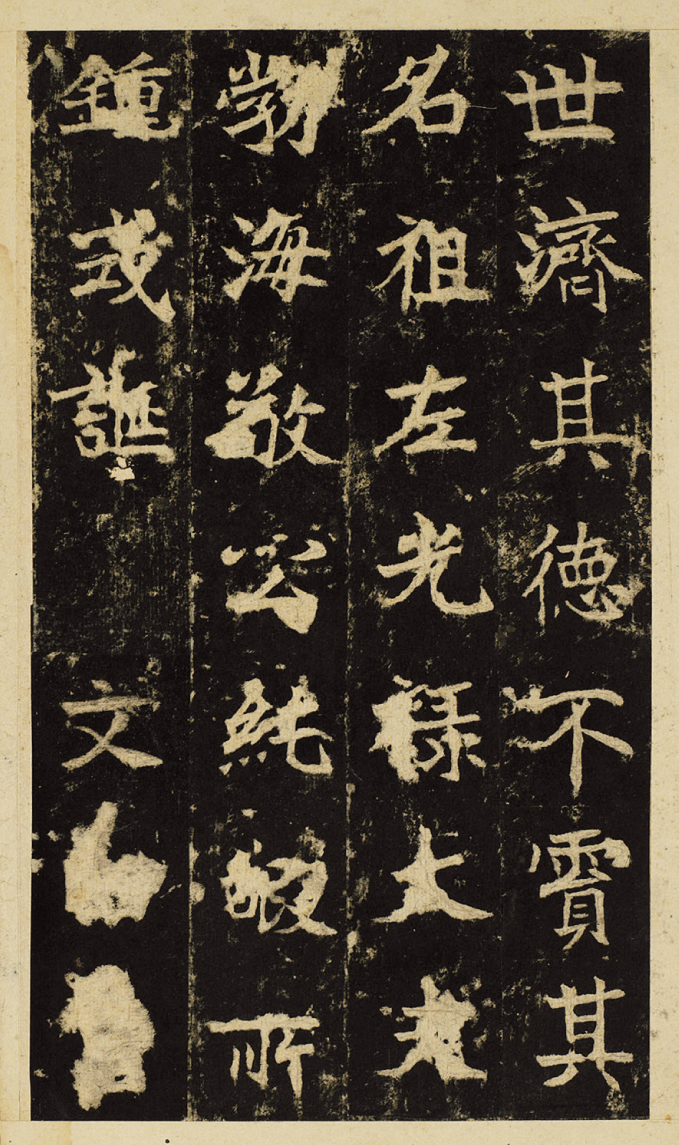 世濟其德不霣其
名祖左光祿大夫
勃海敬公純嘏所
鍾式誕 文